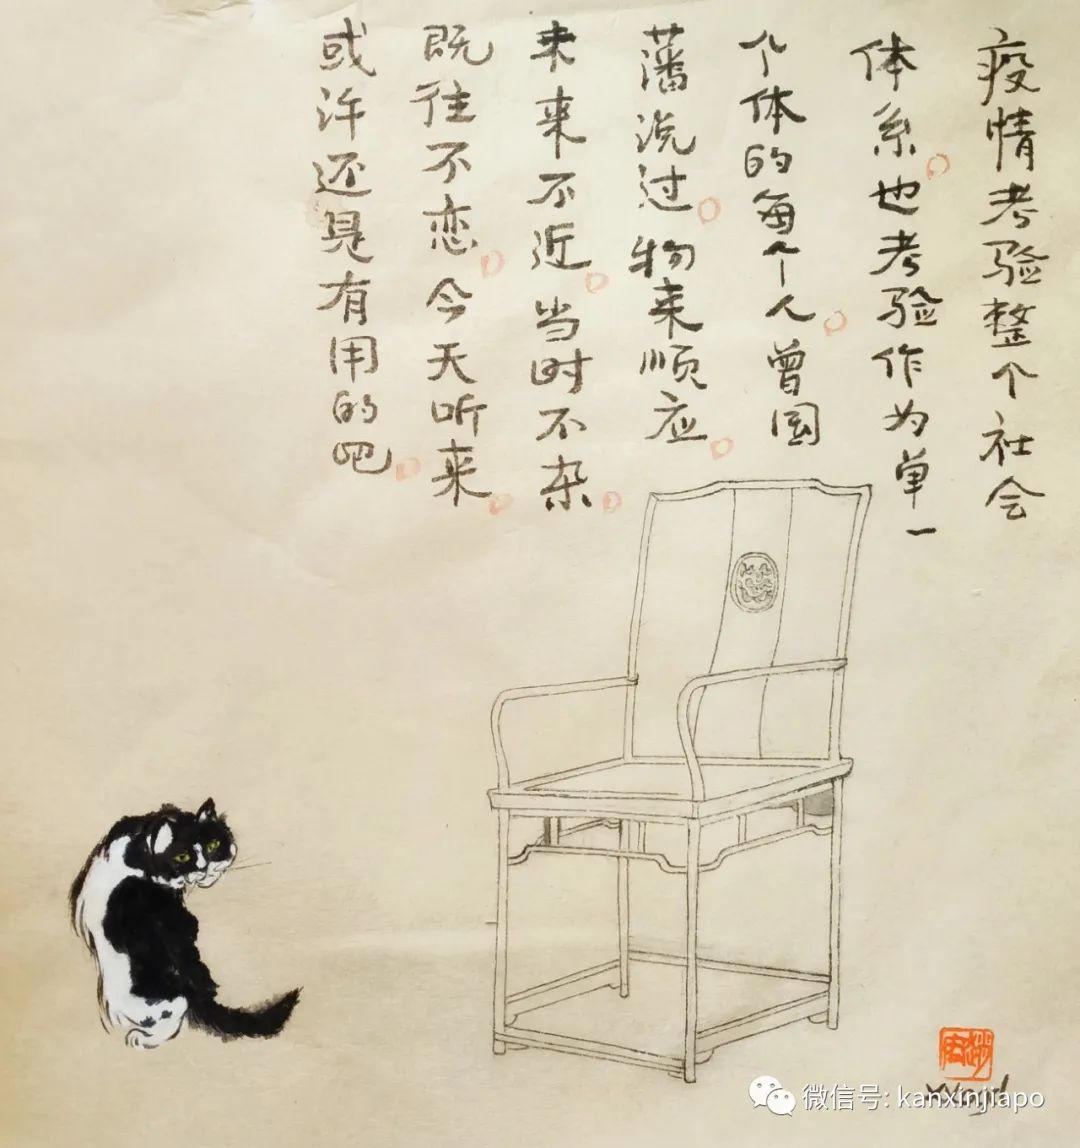 疫情考验整个社会
体系。也考验作为单一
个体的每个人。曾国
藩说过。物来顺应。
未来不近。当时不杂。
既往不恋。今天听来。
或许还是有用的吧。
微信号: kanxinjiapo